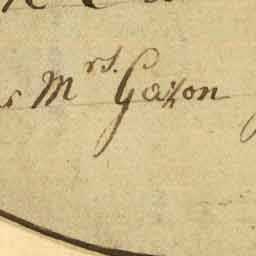 Mrs. Gaxon